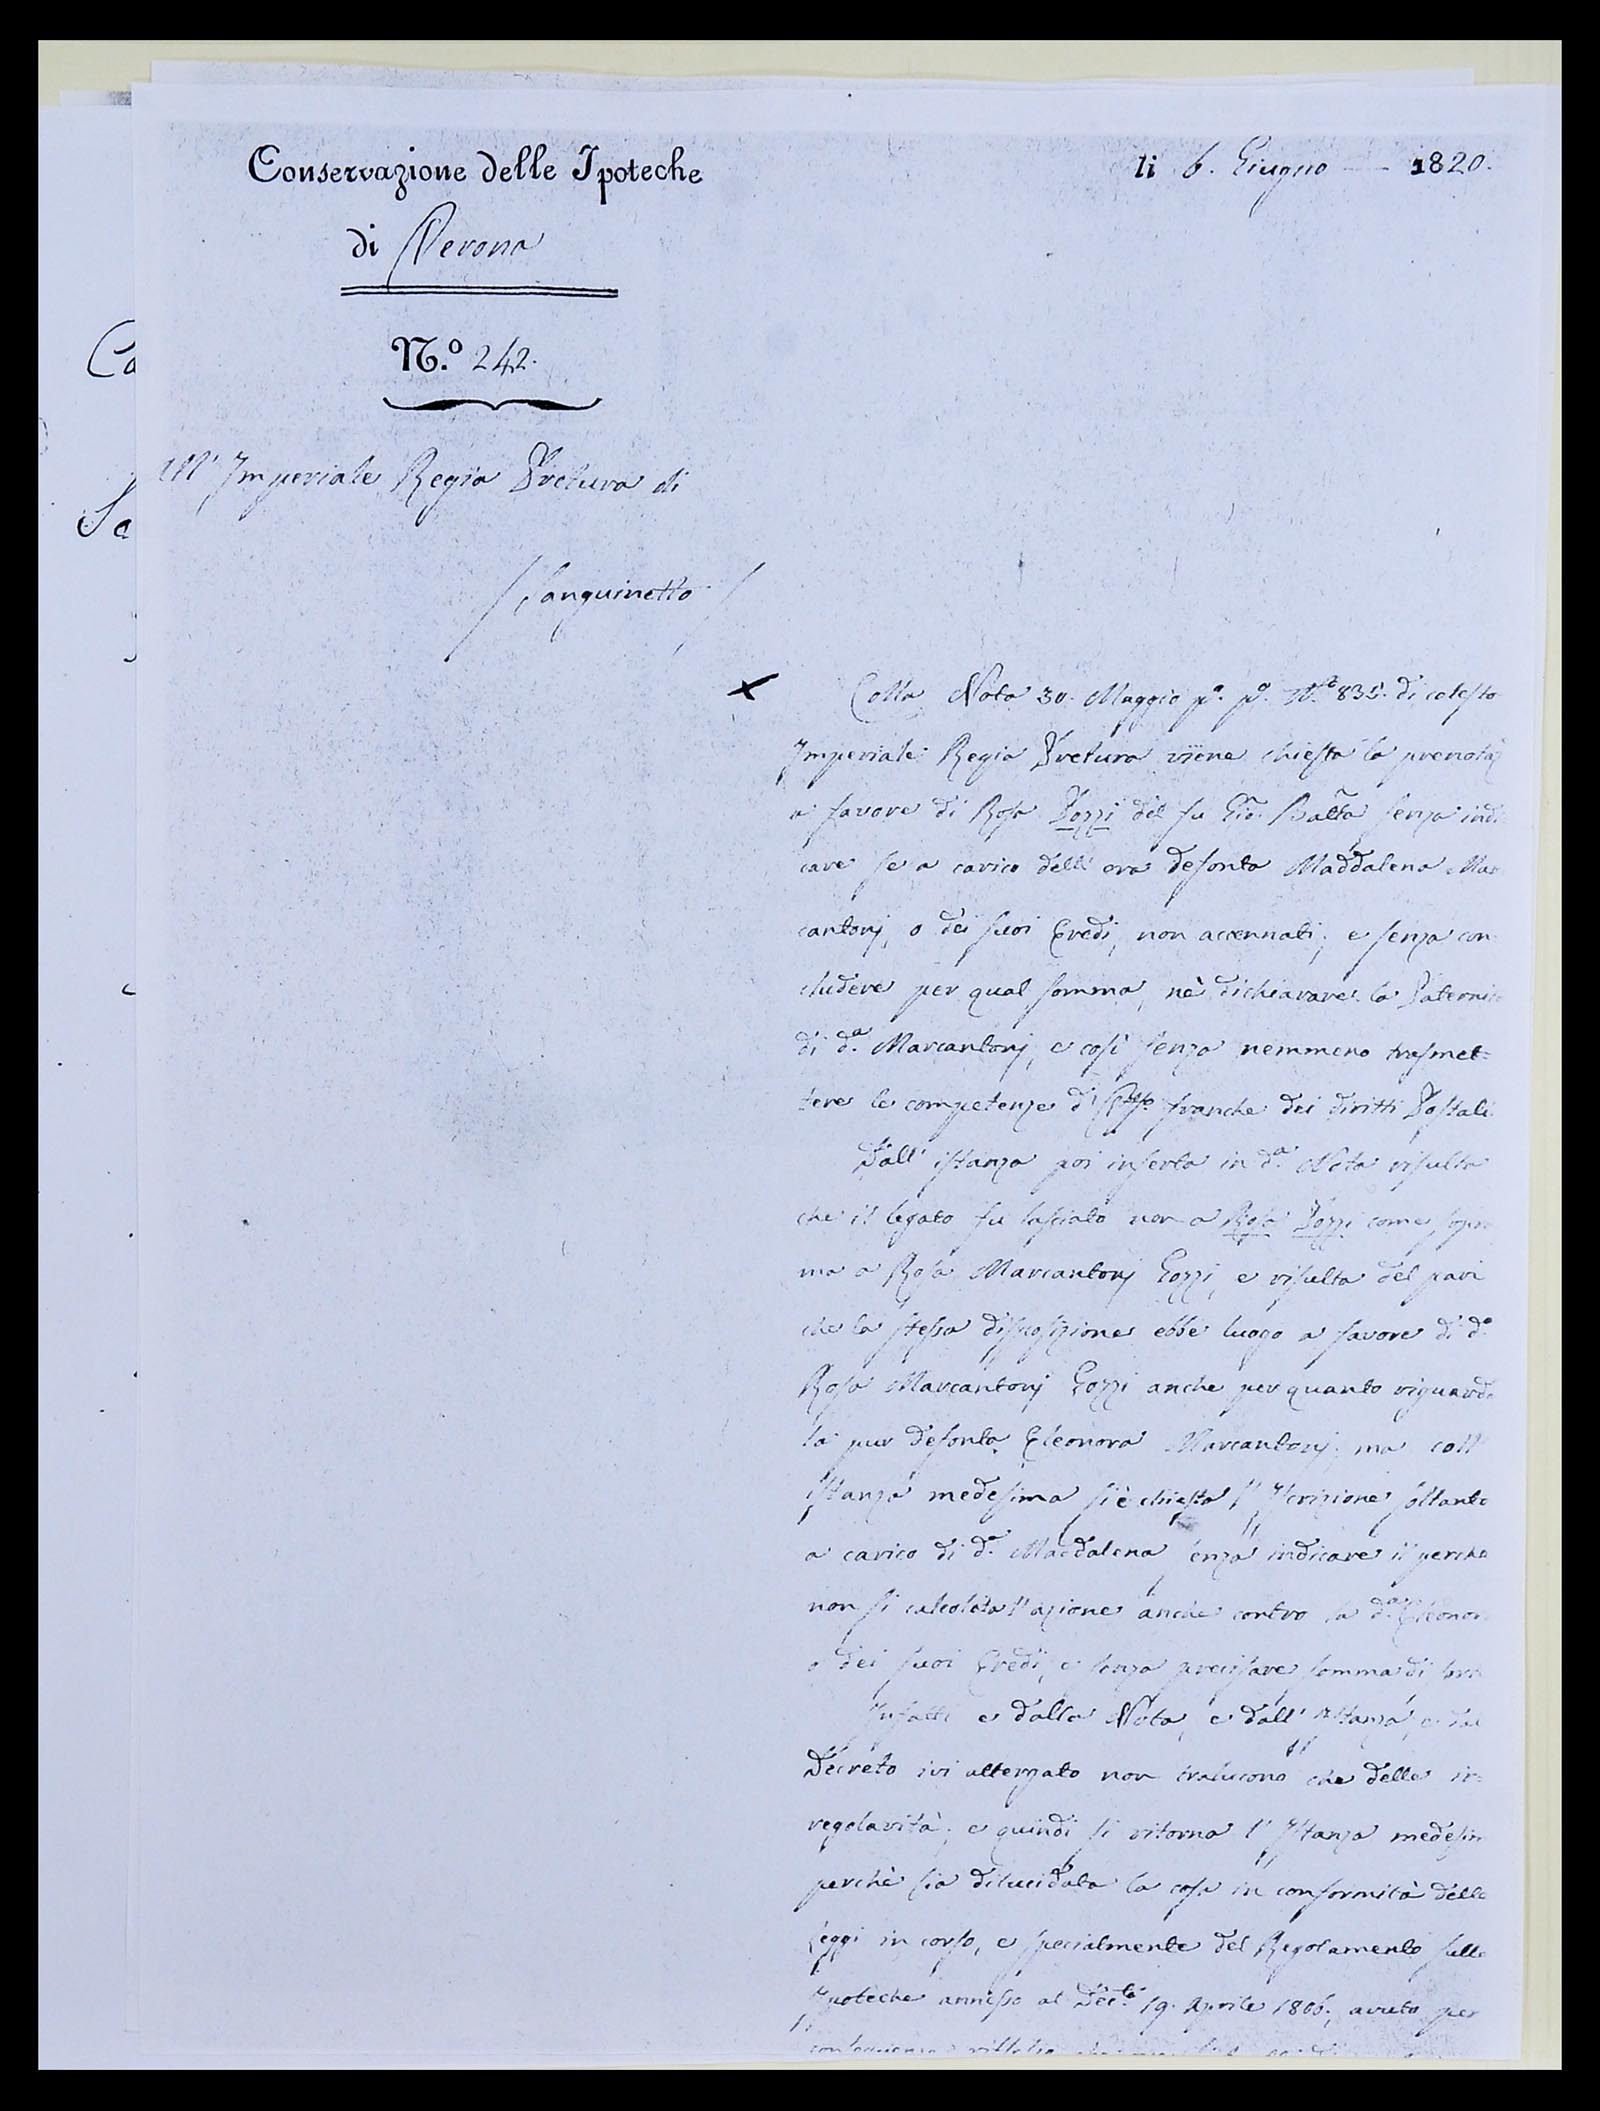 Conservazione delle Ipoteche
li 6. Giugno 1820.
di Verona
N.º 242.
Co
All' Imperiale Regia Pretura di
Sa
Sanguinetto
Colla Nota 30. Maggio pº. pº. N.º 835. di cotesta
Imperiale Regia Pretura viene chiesta la prenotaz
a favore di Rosa Pozzi del fu Gio. Batta senza indi
care se a carico dell' ora defonta Maddalena Mar
cantonj, o dei suoi Eredi, non accennati; e senza con
cludere per qual somma, nè dichiarare la Paternità
di d.a Marcantonj, e così senza nemmeno trasmet=
tere le competenze d' franche dei diritti Postali.
Dall' istanza poi inserta in d.a Nota risulta
che il legato fu lasciato non a Rosa Pozzi come sopra
ma a Rosa Marcantonj Gozzi, e risulta del pari
che la stessa disposizione ebbe luogo a favore di d.a
Rosa Marcantonj Gozzi anche per quanto riguarda
la pur defonta Eleonora Marcantonj; ma coll'
istanza medesima si è chiesta l' Iscrizione soltanto
a carico di d.a Maddalena senza indicare il perchè
non si calcolata l' azione anche contro la d.a Eleonora
o dei suoi Eredi, e senza precisare somma di
Infatti e dalla Nota, e dall' Istanza, e dal
Decreto ivi attergato non tralucono che delle ir=
regolarità; e quindi si ritorna l' Istanza medesim
perchè sia dilucidata la cosa in conformità delle
Leggi in corso, e specialmente del Regolamento sulle
Ipoteche annesso al Dec.to 19. Aprile 1806., avuto per